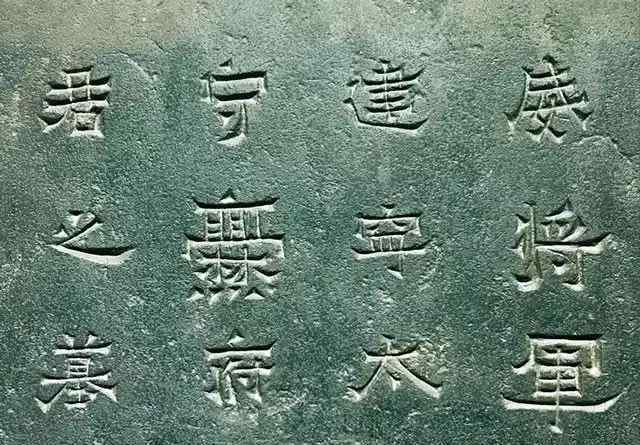 威將軍
建寧太
守爨府
君之墓